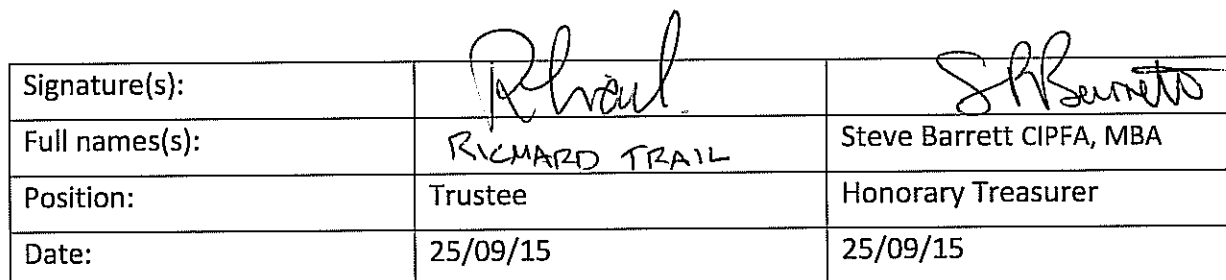 Signature(s): RTrail. SRBarrett
Full names(s): RICHARD TRAIL Steve Barrett CIPFA, MBA
Position: Trustee Honorary Treasurer
Date: 25/09/15 25/09/15